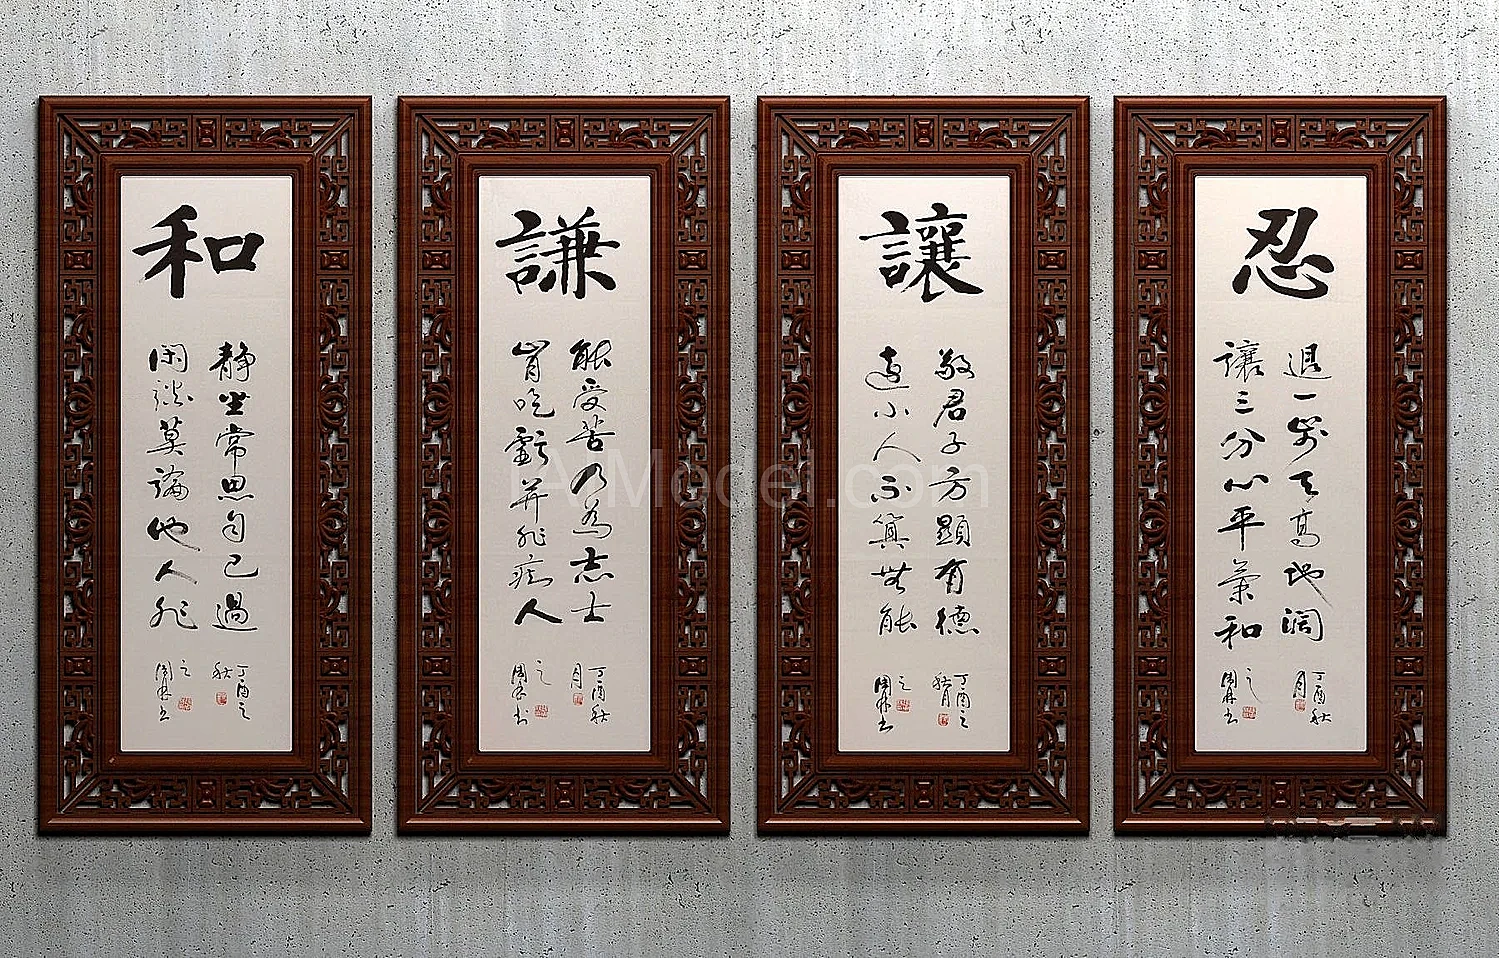 忍
退一步天高地阔
讓三分心平氣和
丁酉秋
月
讓
敬君子方顯有德
遠小人不算無能
丁酉之
秋月
謙
能受苦乃為志士
肯吃虧并非痴人
丁酉秋
月
和
静坐常思自己過
闲談莫論他人非
丁酉之
秋
Model.com